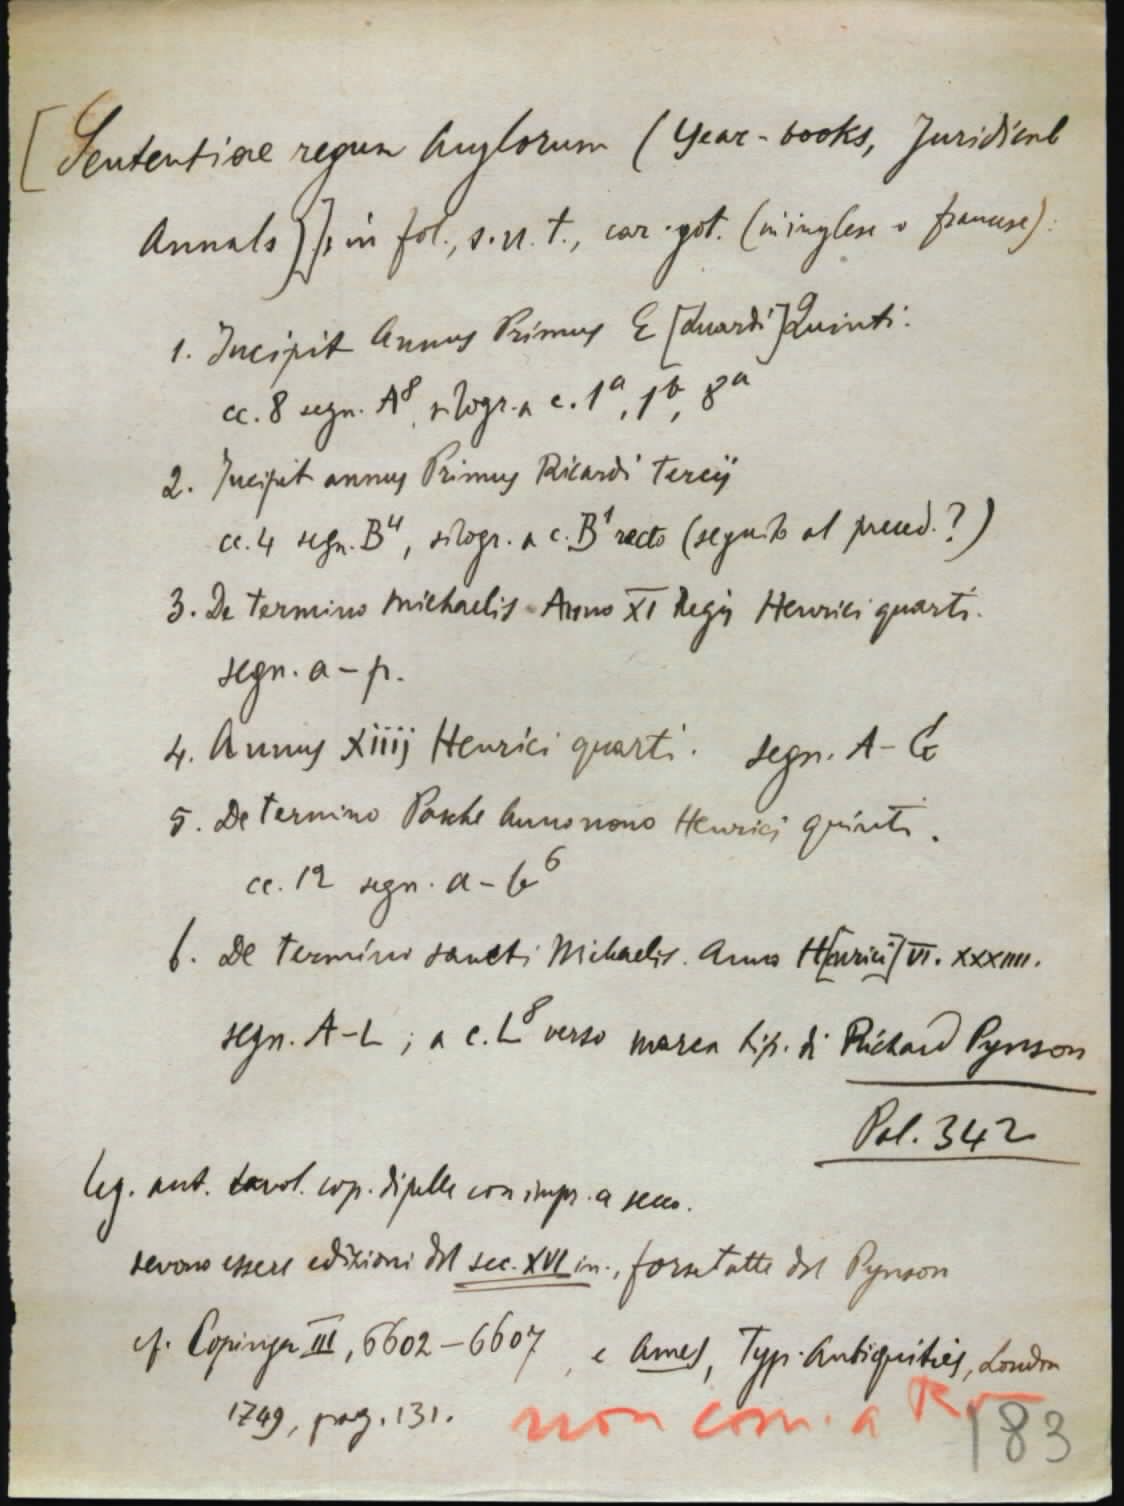 [Sententiae regum Anglorum (Year-books, Juridical
Annals)], in fol., s.n.t., car. got. (in inglese o francese):
1. Incipit Annus Primus E[duardi] Quinti.
cc. 8 segn. A⁸, silogr. a c. 1ᵃ, 1ᵇ, 8ᵃ
2. Incipit annus Primus Ricardi Tercij
cc. 4 segn. B⁴, silogr. a c. B¹ recto (seguito al preced.?)
3. De termino Michaelis Anno XI Regis Henrici quarti.
segn. a-p.
4. Annus xiiij Henrici quarti. segn. A-G
5. De termino Pasche Anno nono Henrici quinti.
cc. 12 segn. a-b⁶
6. De termino sancti Michaelis. Anno H[enrici] VI. XXXIIII.
segn. A-L; a c. L⁸ verso marca tip. di Richard Pynson
Pal. 342
leg. ant. tavol. cop. di pelle con impr. a secco.
devono essere edizioni del sec. XVI in., forse tutte del Pynson
cf. Copinger III, 6602-6607, e Ames, Typ. Antiquities, London
1749, pag. 131.
non com. a
183